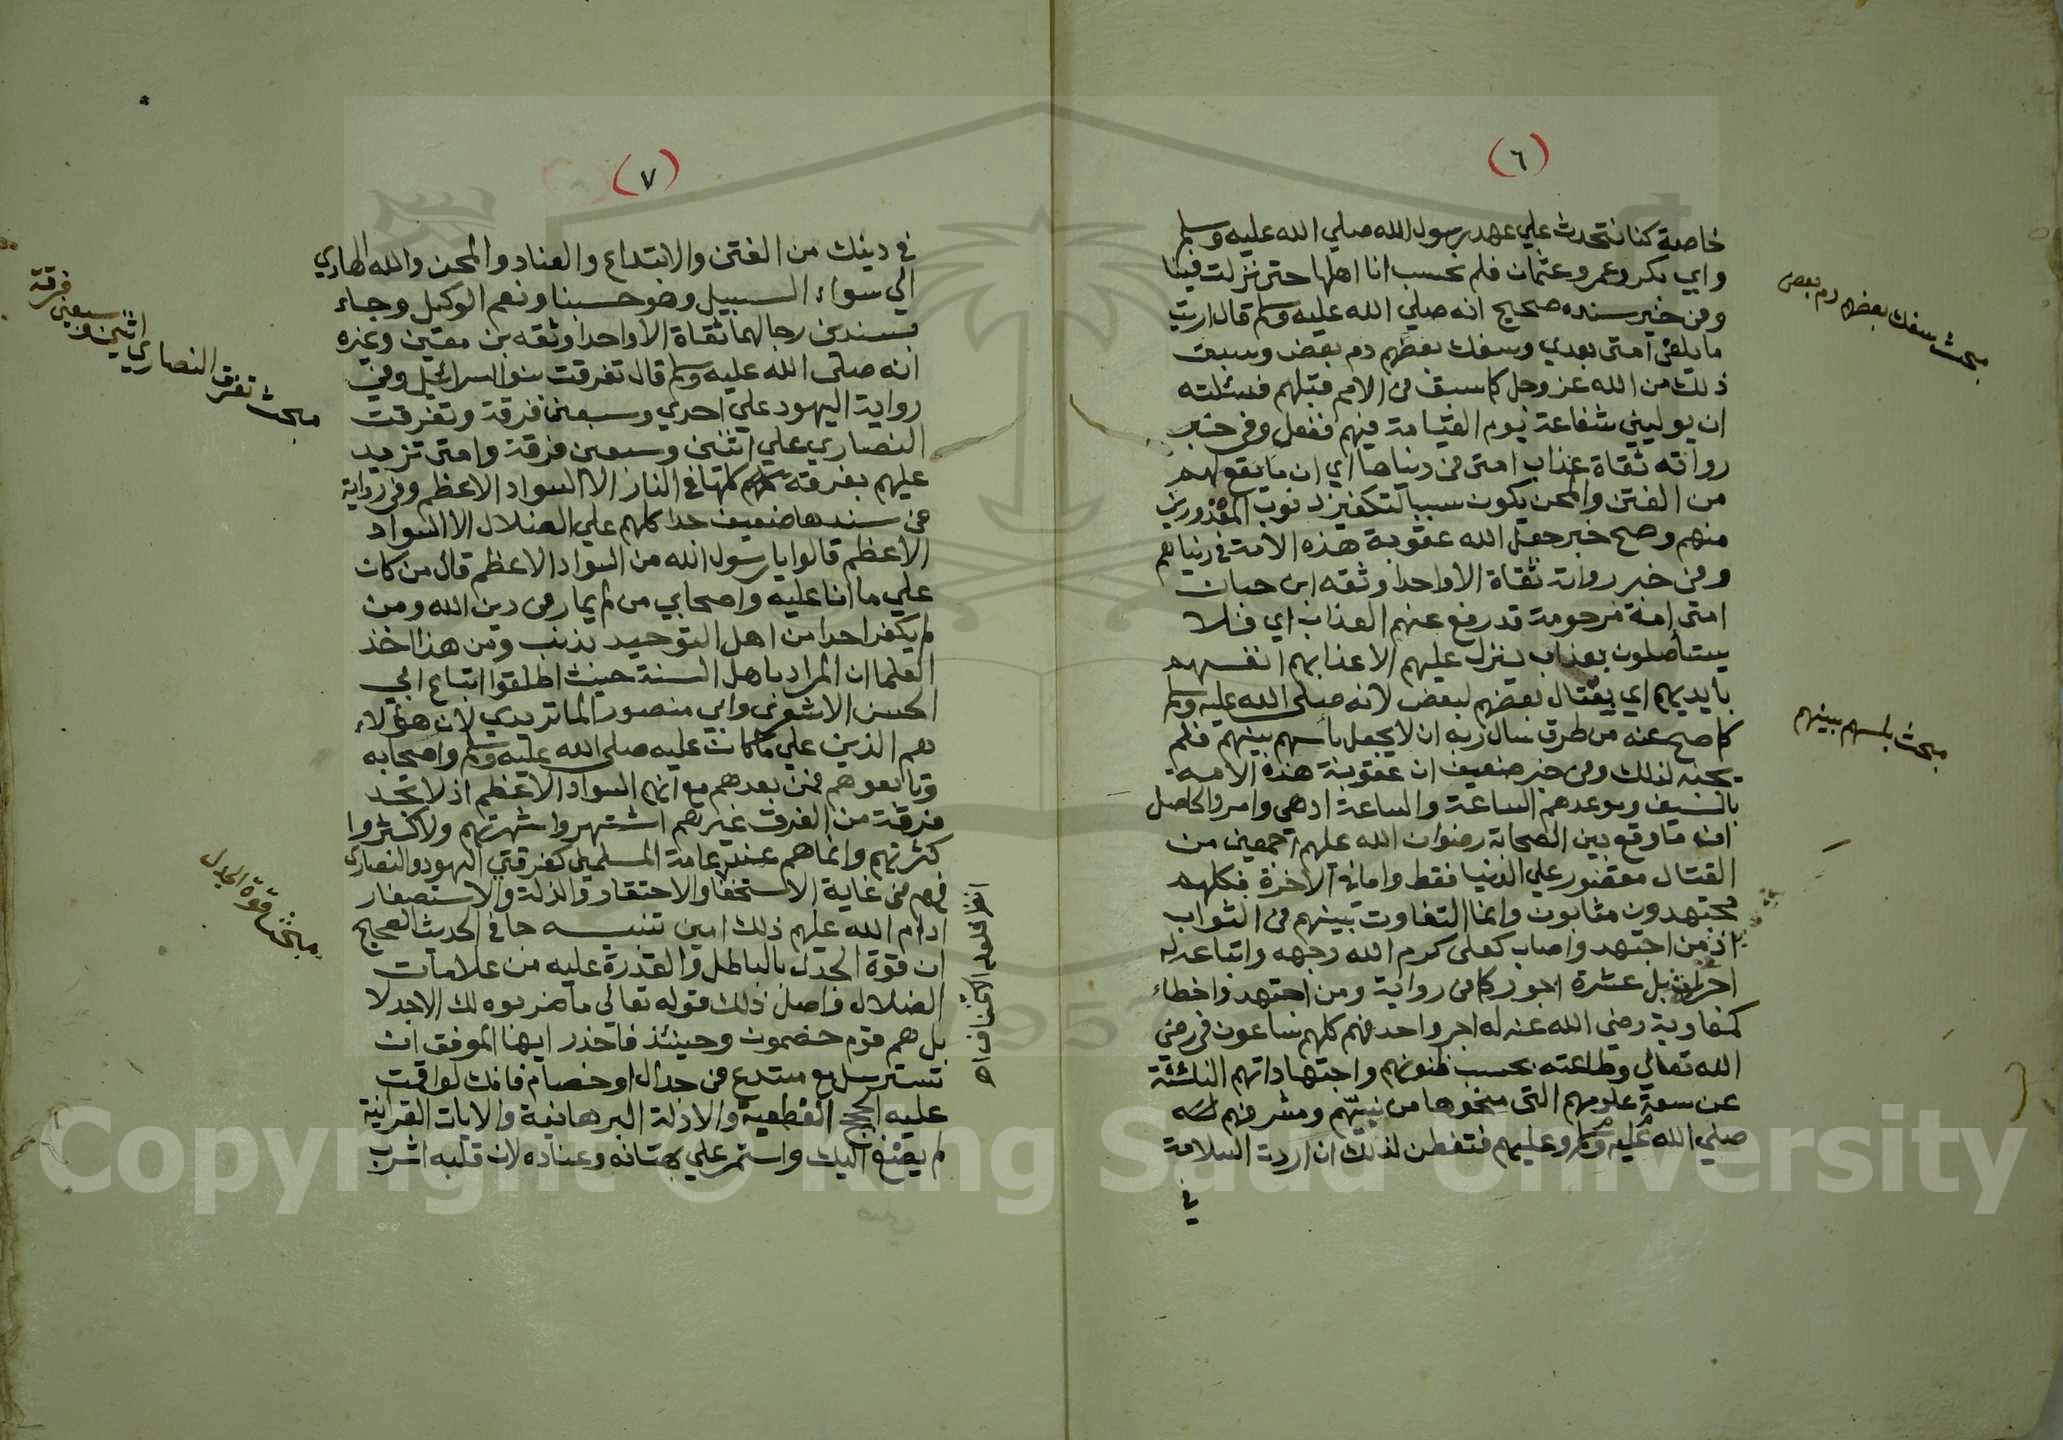 (٦)
خاصة كنا نتحدث علي عهد رسول الله صلي الله عليه وسلم
وابي بكر وعمر وعثمان فلم نحسب انا اهلها حتي نزلت فينا
وفي خبر سنده صحيح انه صلي الله عليه وسلم قال اريت
ما تلقي امتي بعدي وسفك بعضهم دم بعض وسبق
ذلك من الله عز وجل كما سبق في الامم قبلهم فسئلته
ان يوليني شفاعة يوم القيامة فيهم ففعل وفي خبر
رواته ثقاة عذاب امتي في دنياها اي ان ما يقع لهم
من الفتن والمحن يكون سببا لتكفير ذنوب المعذورين
منهم وصح خبر جعل الله عقوبة هذه الامة في دنياهم
وفي خبر رواته ثقاة الا واحدا وثقه ابن حبان
امتي امة مرحومة قد رفع عنهم العذاب اي فلا
يستأصلون بعذاب ينزل عليهم الا عذابهم انفسهم
بايديهم اي بقتال بعضهم لبعض لانه صلى الله عليه وسلم
كما صح عنه من طرق سال ربه ان لا يجعل بأسهم بينهم فلم
يجبه لذلك وفي خبر ضعيف ان عقوبة هذه الامة
بالسيف وموعدهم الساعة والساعة ادهي وامر والحاصل
ان ما وقع بين الصحابة رضوان الله عليهم اجمعين من
القتال مقصور علي الدنيا فقط واما في الآخرة فكلهم
مجتهدون مثابون وانما التفاوت بينهم في الثواب
اذ من اجتهد واصاب كعلي كرم الله وجهه واتباعه له
اجران بل عشرة اجور كما في رواية ومن اجتهد واخطاء
كمعاوية رضي الله عنه له اجر واحد فهم كلهم ساعون في رضي
الله تعالي وطاعته بحسب ظنونهم واجتهاداتهم الناشئة
عن سعة علومهم التي منحوها من نبيهم ومشرفهم
صلي الله عليه وسلم وعليهم فتفطن لذلك ان اردت السلامة
في
مبحث سفك بعضهم دم بعض
مبحث بأسهم بينهم
(٧)
في دينك من الفتن والابتداع والعناد والمحن والله الهادي
الي سواء السبيل وهو حسبنا ونعم الوكيل وجاء
بسندين رجالهما ثقاة الا واحدا وثقه بن معين وغيره
انه صلى الله عليه وسلم قال تفرقت بنوا اسرائيل وفي
رواية اليهود علي احدي وسبعين فرقة وتفرقت
النصاري علي اثنتين وسبعين فرقة وامتي تزيد
عليهم بفرقة كلها في النار الا السواد الاعظم وفي رواية
في سندها ضعيف جدا كلهم علي الضلال الا السواد
الاعظم قالوا يا رسول الله من السواد الاعظم قال من كان
علي ما انا عليه واصحابي من لم يمار في دين الله ومن
لم يكفر احدا من اهل التوحيد بذنب ومن هذا اخذ
العلما ان المراد باهل السنة حيث اطلقوا اتباع ابي
الحسن الاشعري وابي منصور الماتريدي لان هؤلاء
هم الذين علي ما كان عليه صلى الله عليه وسلم واصحابه
وتابعوهم فمن بعدهم مع انهم السواد الاعظم اذ لا تجد
فرقة من الفرق غيرهم اشتهروا شهرتهم ولا كثروا
كثرتهم وانما هم عند عامة المسلمين كفرقتي اليهود والنصاري
فهم في غاية الاستخفا والاحتقار والذلة والاستصغار
ادام الله عليهم ذلك امين تنبيه جا في الحديث الصحيح
ان قوة الجدل بالباطل والقدرة عليه من علامات
الضلال واصل ذلك قوله تعالي ما ضربوه لك الا جدلا
بل هم قوم خصمون وحينئذ فاحذر ايها الموفق ان
تسترسل مع مبتدع في جدال او خصام فانك لو اقمت
عليه الحجج القطعية والادلة البرهانية والايات القرانية
لم يصغ اليك واستمر علي بهتانه وعناده لان قلبه اشرب
مبحث تفرق النصاري اثنين وسبعين فرقة
مبحث قوة الجدل
Copyright © King Saud University
1957